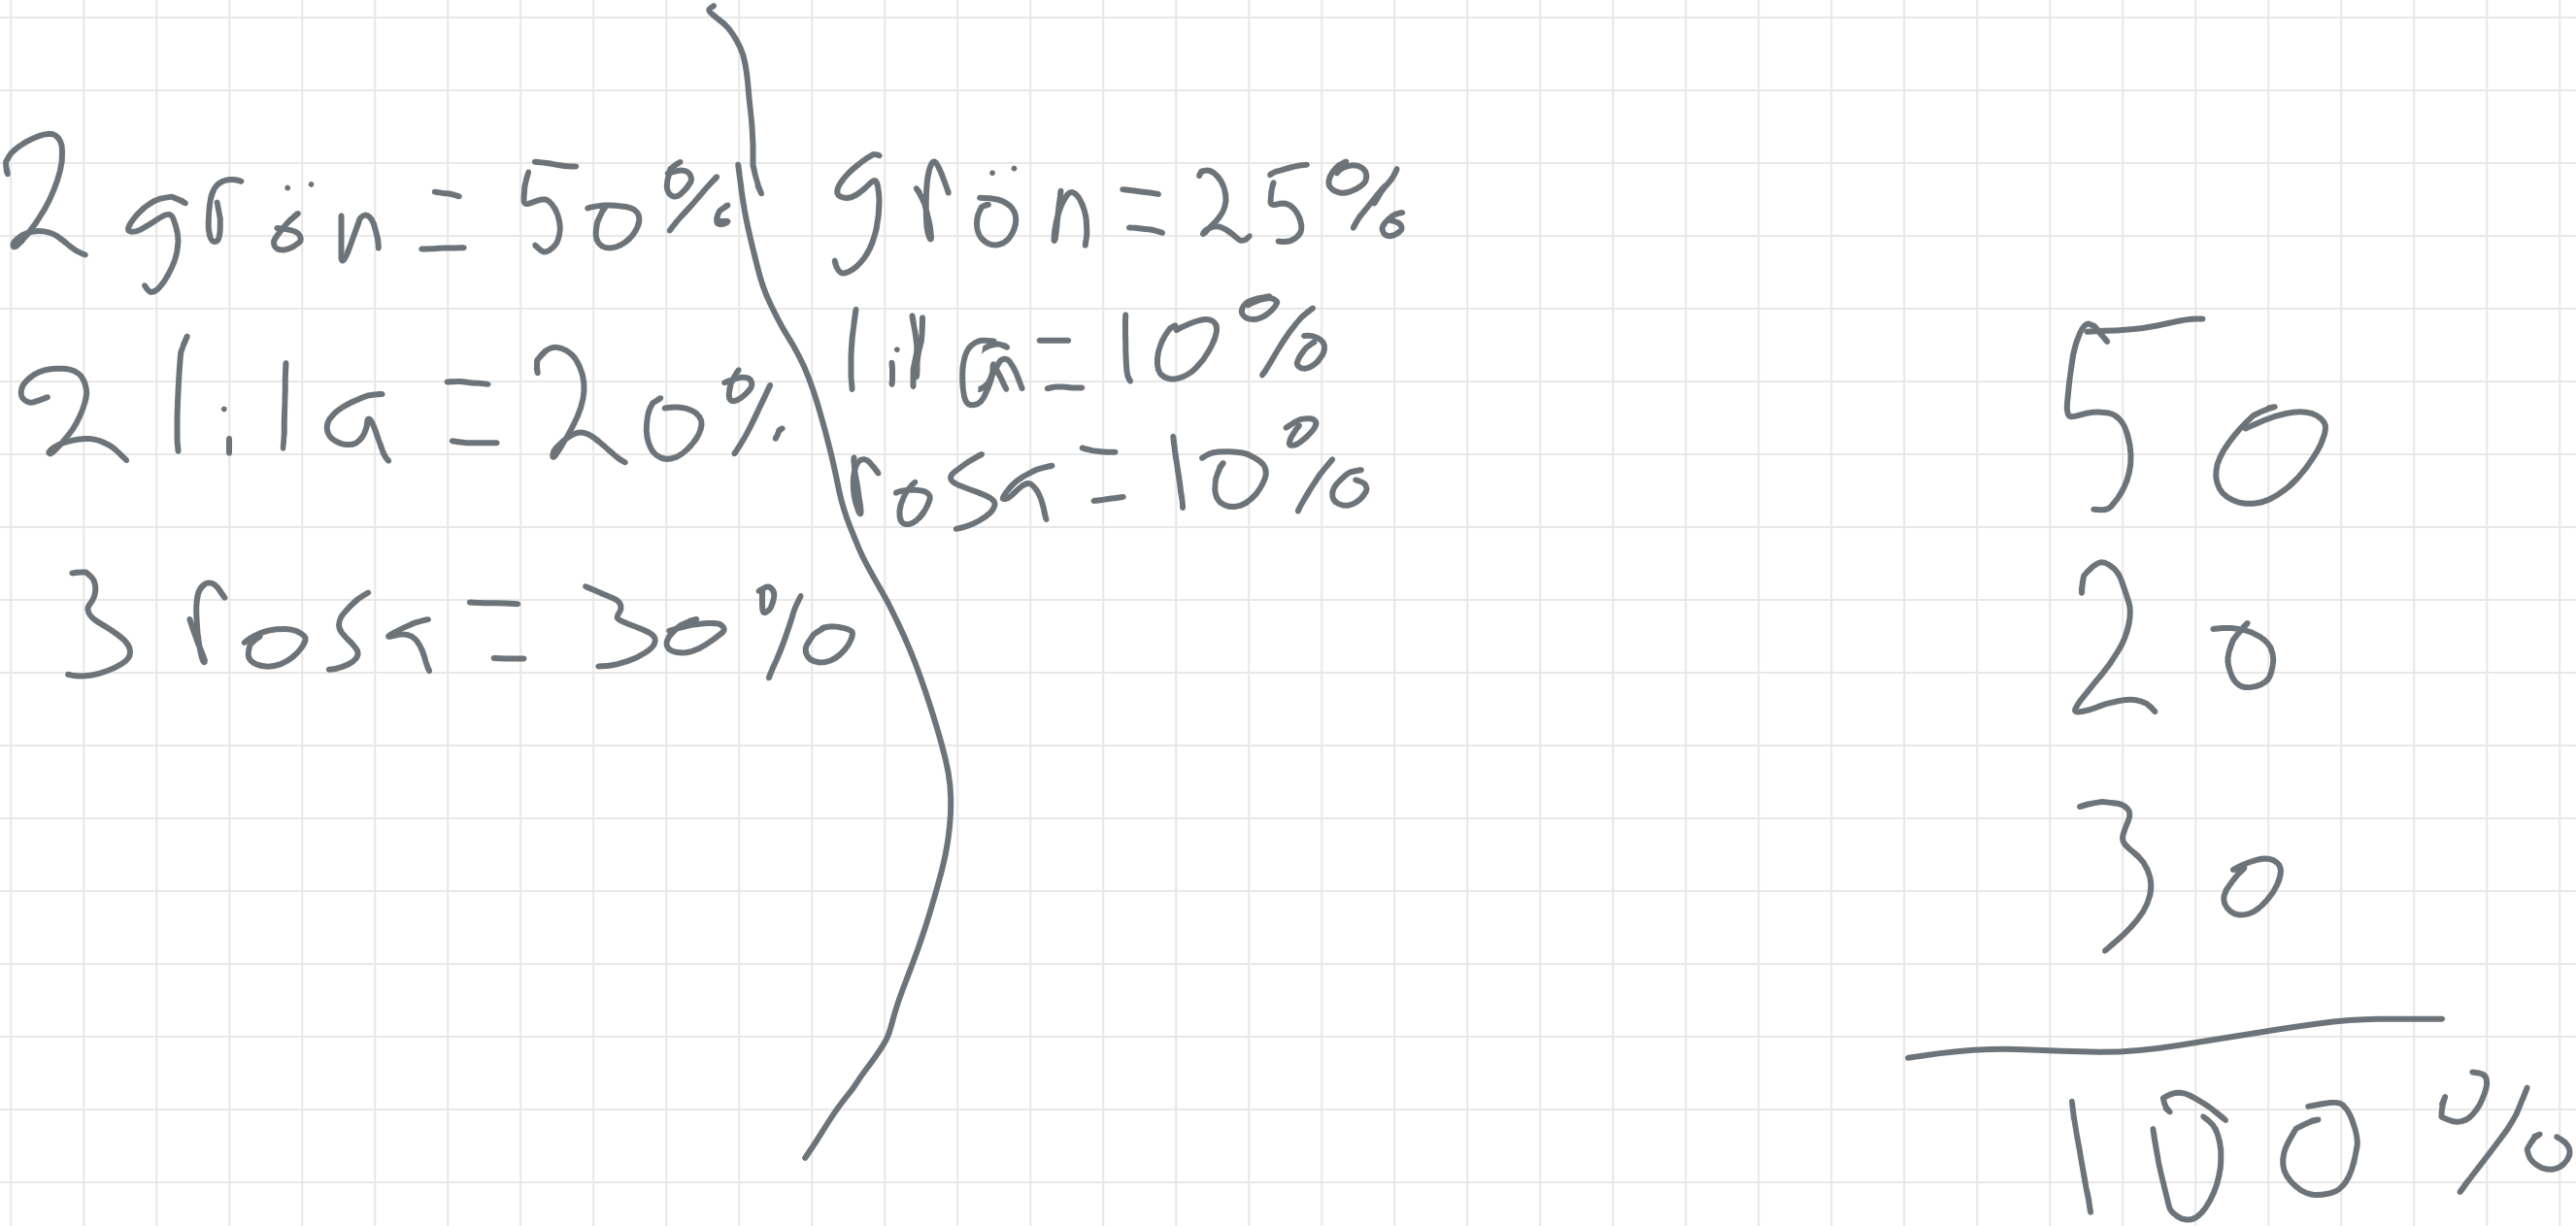 2 grön = 50%
2 lila = 20%
3 rosa = 30%
grön = 25%
lila = 10%
rosa = 10%
50
20
30
100%